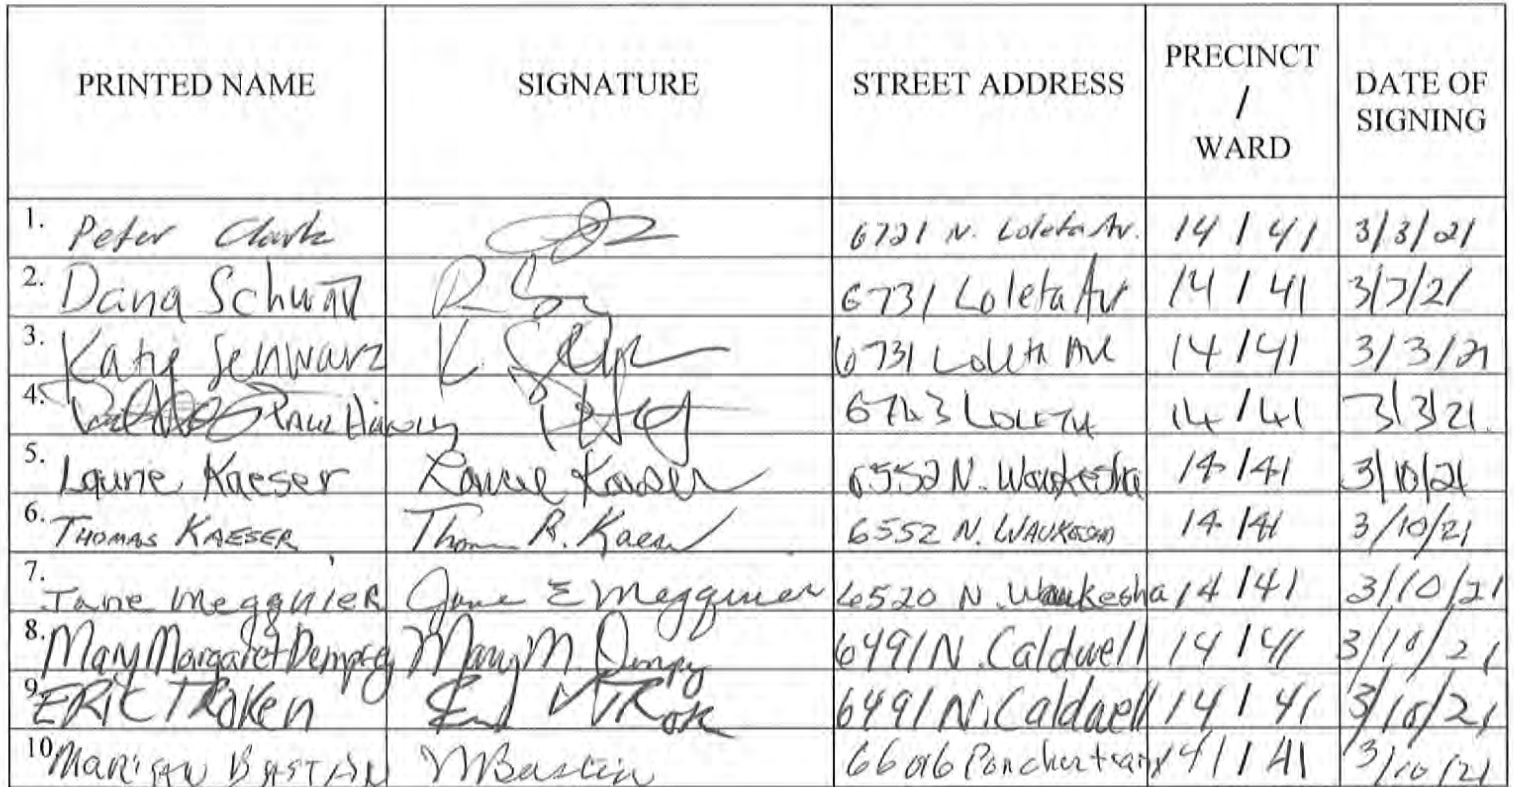 PRINTED NAME SIGNATURE STREET ADDRESS PRECINCT / WARD DATE OF SIGNING
1. Peter Clark 6721 N. Loleta Av. 14 / 41 3/3/21
2. Dana Schwarz 6731 Loleta Av 14 / 41 3/7/21
3. Katie Schwarz K. 6731 Loleta Ave 14 / 41 3/3/21
4. Paul 6743 Loleta 14 / 41 3/3/21
5. Laurie Kaeser Laurie Kaeser 6552 N. Waukesha 14 / 41 3/10/21
6. Thomas Kaeser Thomas R. Kaeser 6552 N. Waukesha 14 / 41 3/10/21
7. Jane Megquier Jane E Megquier 6520 N. Waukesha 14 / 41 3/10/21
8. Mary Margaret Dempsey Mary M. Dempsey 6491 N. Caldwell 14 / 41 3/10/21
9. ERIC TROKEN 6491 N. Caldwell 14 / 41 3/10/21
10. BASTIAN M Bastian 6606 Ponchartrain 14 / 41 3/10/21